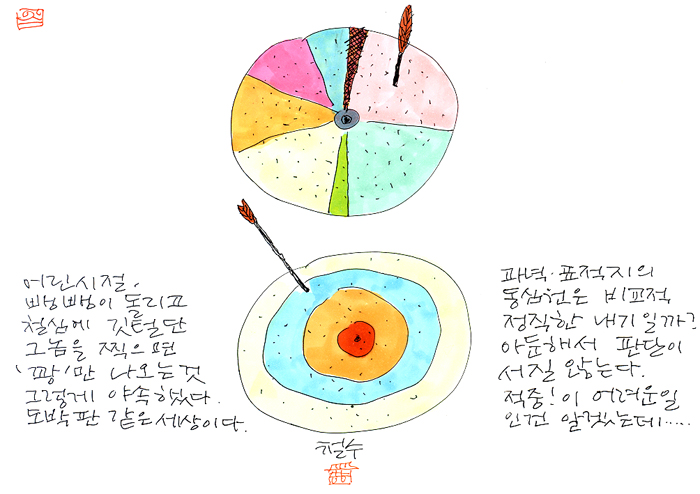 어린시절,
뺑뺑이 돌리고
철심에 깃털단
그놈을 찍으면
'꽝'만 나오는것
그렇게 야속했다.
도박판 같은세상이다.
과녁·표적지의
동심원은 비교적
정직한 내기일까?
아둔해서 판단이
서질 않는다.
적중! 이 어려운일
인건 알겠는데.....
철수